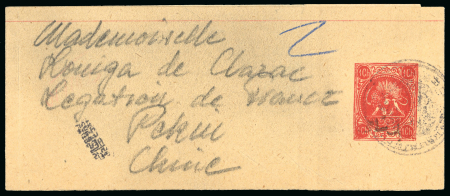 Mademoiselle
Kouiga de Clazac
Légation de France
Pekin
Chine